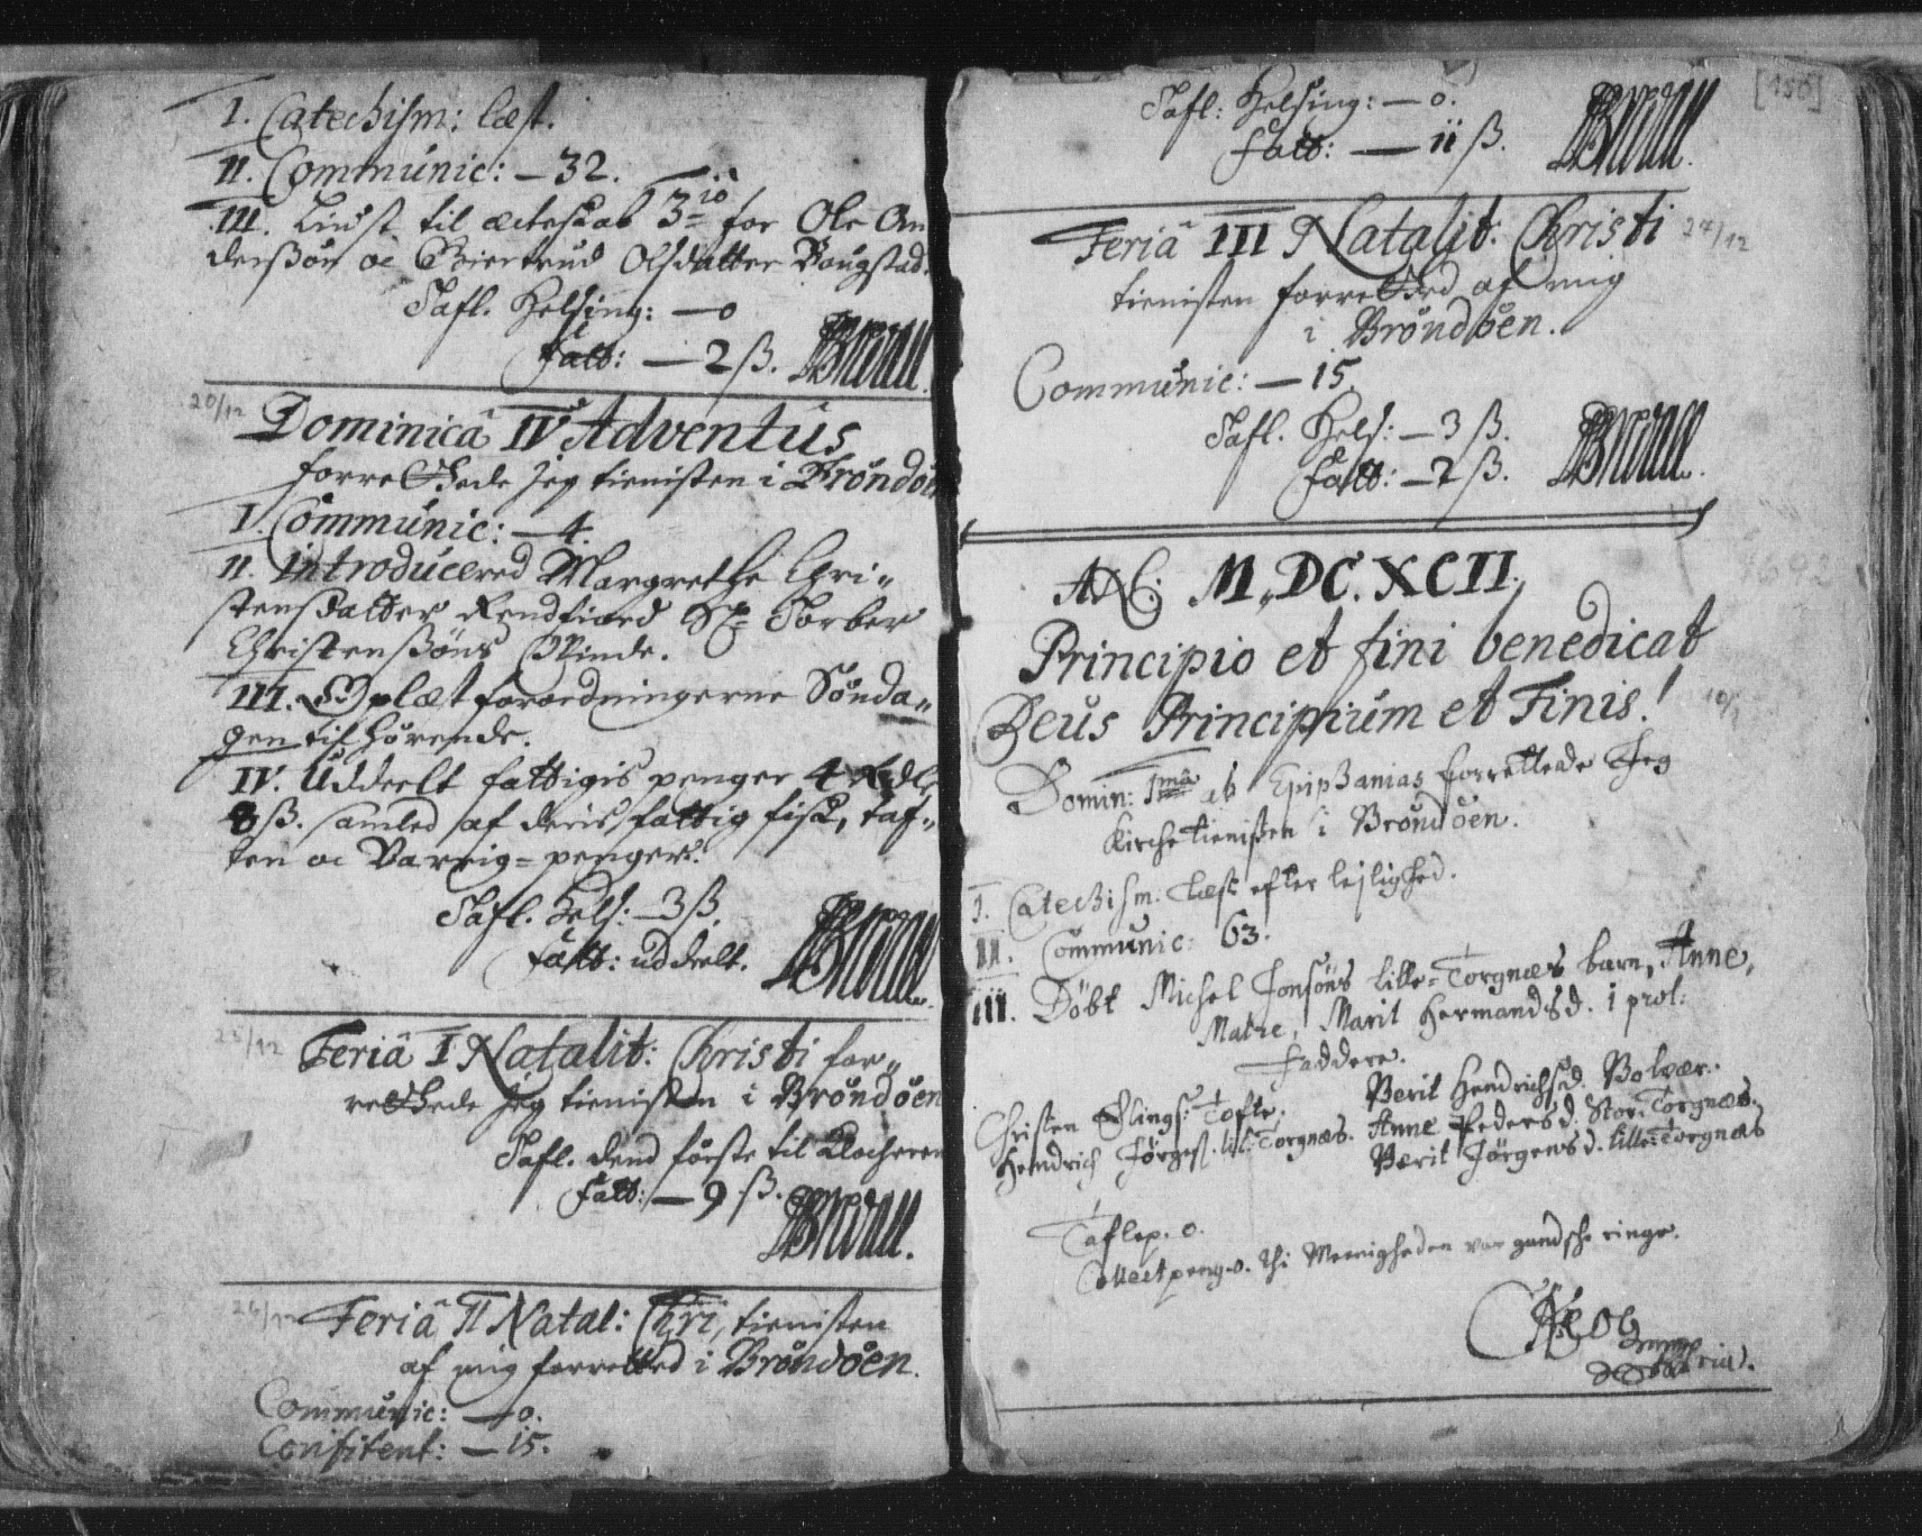 I. Catechism: læst.
II. Communic: – 32.
III. Liust til ecteskab 3io for Ole An
derßøn oc Giertrud Olsdatter Baugstad.
Tafl. Helsing: – 0
Fatt: – 2 ß.
20/12
Dominicâ IV Adventus
forrettede jeg tienisten i Brøndøen
I. Communic: – 4.
II. Introducered Margrethe Chri„
stensdatter Rendfiord Sl. Torber
Christenßøns Qvinde.
III. Oplæst forordningerne Sønda„
gen til hørende.
IV. Uddeelt fattigis penger 4 Rdlr
8 ß. samled af deris fattig fisk, taf„
ten oc Varrig= penger.
Tafl. Hels: – 3 ß.
Fatt: uddeelt.
25/12
Feriâ I Natalit: Christi for„
rettede jeg tienisten i Brøndøen
Tafl. dend første til Klocheren
Fatt: – 9 ß.
26/12
Feriâ II Natal: Chri, tienisten
af mig forretted i Brøndøen.
Communic: – 0.
Confitent: – 15.
[156]
Tafl: Helsing: – 0.
Fatt: – 11 ß.
Feriâ III Natalit. Christi 27/12
tienisten forretted af mig
i Brøndøen.
Communic: – 15.
Tafl. Hels: – 3 ß.
Fatt: – 2 ß.
1692
M.DC.XCII.
Principio et fini benedicat
Deus Principium et Finis!
10/1
Domin: 1mâ ab Epiphanias forrettede Jeg
Kirchetienisten i Brøndøen.
I. Catechism. Læst efter lejlighed.
II. Communic: 63.
III. Døbt Michel Jonsøns lille=Torgnæs barn, Anne,
Matre, Marit Hermandsd. i prol:
Faddere.
Christen Ellings: Tofte. Berit Hendrichsd. Bolvær.
Hendrich Jørgens. lil: Torgnæs. Anne Pedersd. Stor: Torgnæs.
Berit Jørgensd. lille: Torgnæs
Taflep. 0.
Collectpeng. 0. thi Meenigheden var gandsche ringe.